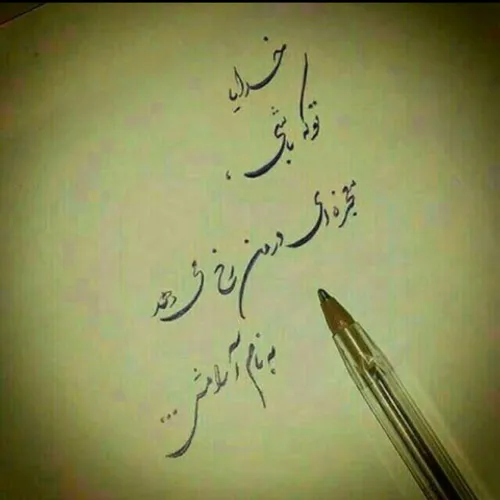 خدایا
تو که باشی،
معجزه ای در من رخ می دهد
به نام آرامش...